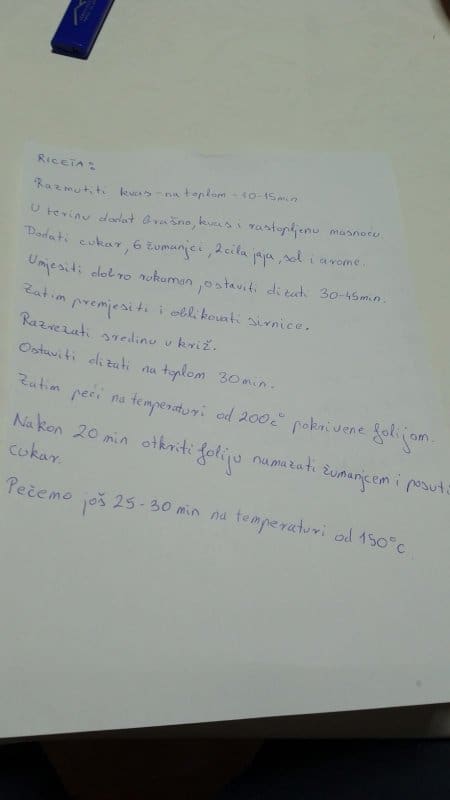 RICETA:
Razmutiti kvas - na toplom - 10-15min
U terinu dodat brašno, kvas i rastopljenu masnoću
Dodati cukar, 6 žumanjci, 2 cila jaja, sol i arome.
Umjesiti dobro rukaman, ostaviti dizati 30-45min.
Zatim premjesiti i oblikovati sirnice.
Razrezati sredinu u križ.
Ostaviti dizati na toplom 30min.
Zatim peći na temperaturi od 200c° pokrivene folijom.
Nakon 20 min otkriti foliju namazati žumanjcem i posuti
cukar.
Pečemo još 25-30 min na temperaturi od 150°c